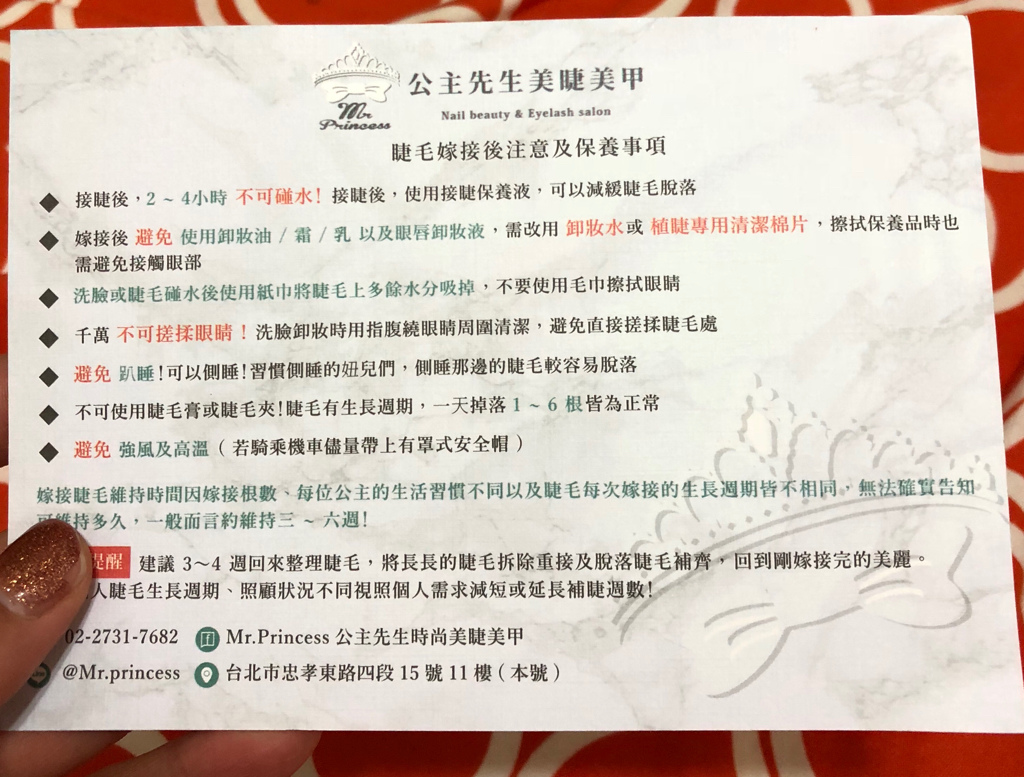 公主先生美睫美甲
Mr Princess
Nail beauty & Eyelash salon
睫毛嫁接後注意及保養事項
接睫後，2 ~ 4小時 不可碰水! 接睫後，使用接睫保養液，可以減緩睫毛脫落
嫁接後 避免 使用卸妝油 / 霜 / 乳 以及眼唇卸妝液，需改用 卸妝水或 植睫專用清潔棉片，擦拭保養品時也
需避免接觸眼部
洗臉或睫毛碰水後使用紙巾將睫毛上多餘水分吸掉，不要使用毛巾擦拭眼睛
千萬 不可搓揉眼睛！洗臉卸妝時用指腹繞眼睛周圍清潔，避免直接搓揉睫毛處
避免 趴睡!可以側睡!習慣側睡的妞兒們，側睡那邊的睫毛較容易脫落
不可使用睫毛膏或睫毛夾!睫毛有生長週期，一天掉落 1 ~ 6 根皆為正常
避免 強風及高溫（若騎乘機車儘量帶上有罩式安全帽）
嫁接睫毛維持時間因嫁接根數、每位公主的生活習慣不同以及睫毛每次嫁接的生長週期皆不相同，無法確實告知
可維持多久，一般而言約維持三 ~ 六週!
提醒 建議 3～4 週回來整理睫毛，將長長的睫毛拆除重接及脫落睫毛補齊，回到剛嫁接完的美麗。
人睫毛生長週期、照顧狀況不同視照個人需求減短或延長補睫週數!
02-2731-7682 Mr.Princess 公主先生時尚美睫美甲
@Mr.princess 台北市忠孝東路四段 15 號 11 樓（本號）